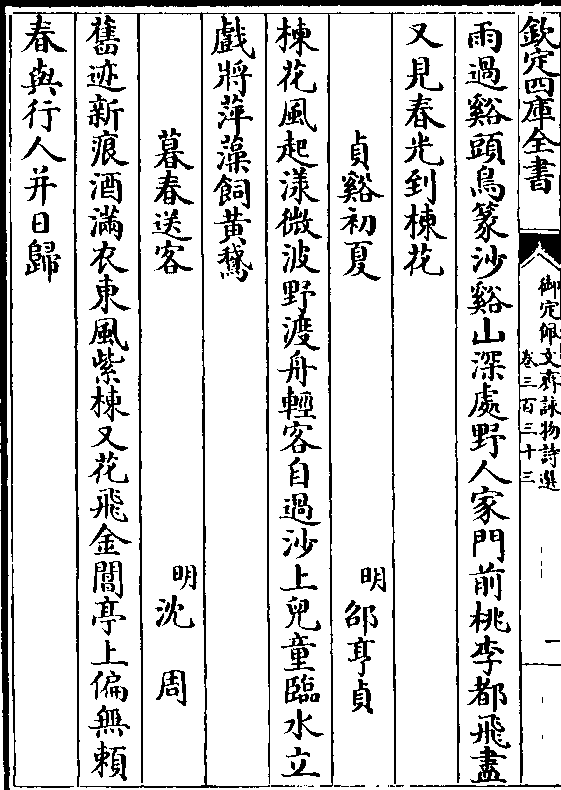 欽定四庫全書
御定佩文齋詠物詩選
卷三百三十三
一
雨過谿頭鳥篆沙谿山深處野人家門前桃李都飛盡
又見春光到楝花
貞谿初夏
明邵亨貞
楝花風起漾微波野渡舟輕客自過沙上兒童臨水立
戲將萍藻飼黃鵝
暮春送客
明沈周
舊迹新痕酒滿衣東風紫楝又花飛金閶亭上偏無賴
春與行人并日歸